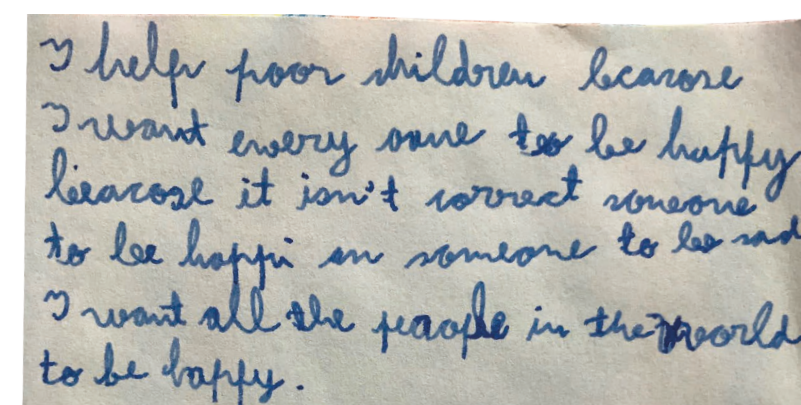 I help poor children becarose
I want every oone to be happy
beacose it isn't correct someone
to be happi an someone to be sad
I want all the peaople in the world
to be happy.